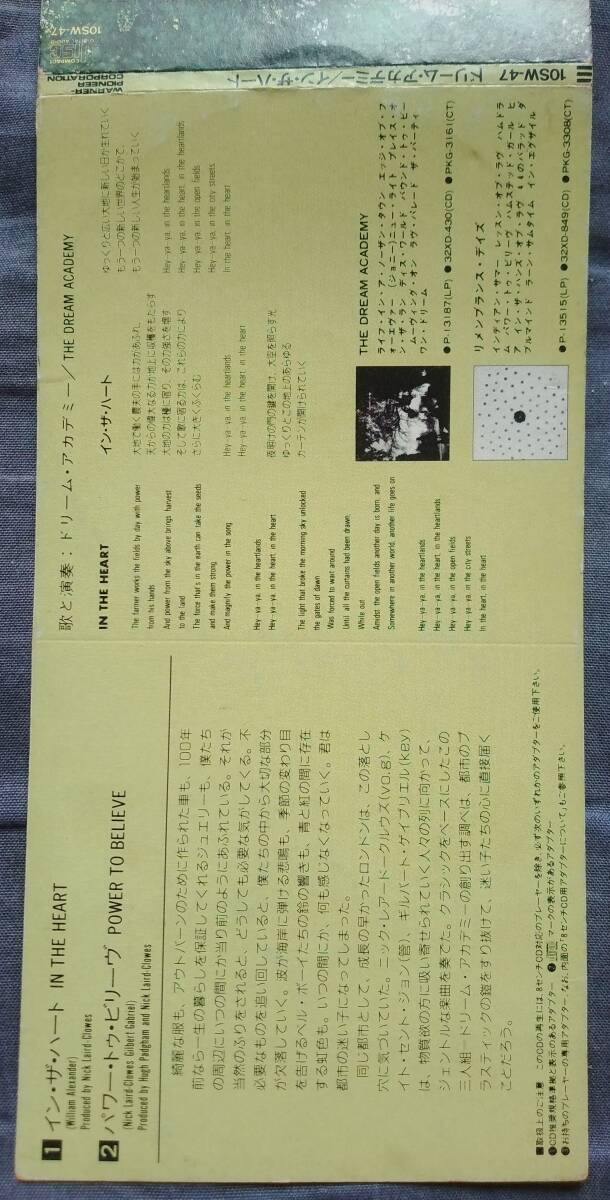 1 イン・ザ・ハート IN THE HEART
(William Alexander)
Produced by Nick Laird-Clowes
2 パワー・トゥ・ビリーヴ POWER TO BELIEVE
(Nick Laird-Clowes Gilbert Gabriel)
Produced by Hugh Padgham and Nick Laird-Clowes
綺麗な服も、アウトバーンのために作られた車も、100年
前なら一生の暮らしを保証してくれるジュエリーも、僕たち
の周辺にいつの間にか当り前のようにあふれている。それが
当然のふりをされると、どうしても必要な気がしてくる。不
必要なものを追い回していると、僕たちの中から大切な部分
が欠落していく。波が海岸に弾ける悲鳴も、季節の変わり目
を告げるベル・ボーイたちの鈴の響きも、青と紅の間に存在
する虹色も。いつの間にか、何も感じなくなっていく。君は
都市の迷い子になってしまった。
同じ都市として、成長の早かったロンドンは、この落とし
穴に気づいていた。ニック・レアード-クルウズ(vo,g)、ケ
イト・セント・ジョン(管)、ギルバート・ゲイブリエル(key)
は、物質欲の方に吸い寄せられていく人々の列に向かって、
ジェントルな楽曲を奏でた。クラシックをベースにしたこの
三人組—ドリーム・アカデミーの創り出す調べは、都市のプ
ラスティックの鎧をすり抜けて、迷い子たちの心に直接届く
ことだろう。
■取扱上のご注意 このCDの再生には、8センチCD対応のプレーヤーを除き、必ず次のいずれかのアダプターをご使用下さい。
❶CD推奨規格準拠と表示のあるアダプター ❷マークの表示があるアダプター
❸お持ちのプレーヤーの専用アダプター。なお、内面の「8センチCD用アダプターについて」もご参照下さい。
歌と演奏：ドリーム・アカデミー／THE DREAM ACADEMY
IN THE HEART
The farmer works the fields by day with power
from his hands
And power from the sky above brings harvest
to the land
The force that's in the earth can take the seeds
and make them strong
And magnify the power in the song
Hey-ya-ya, in the heartlands
Hey-ya-ya, in the heart, in the heart
The light that broke the morning sky unlocked
the gates of dawn
Was forced to wait around
Until all the curtains had been drawn,
While out
Amidst the open fields another day is born, and
Somewhere in another world, another life goes on
Hey-ya-ya, in the heartlands
Hey-ya-ya, in the heart, in the heartlands
Hey-ya-ya, in the open fields
Hey-ya-ya, in the city streets
In the heart, in the heart
イン・ザ・ハート
大地で働く農夫の手には力があふれ、
天からの偉大なる力が地上に収穫をもたらす
大地の力は種に宿り、その力強さを増す
そして歌に宿る力は、これらの力により
さらに大きくふくらむ
Hey-ya-ya, in the heartlands
Hey-ya-ya, in the heart, in the heart
夜明けの門の鍵を開け、大空を照らす光
ゆっくりとこの地上のあらゆる
カーテンが開けられていく
ゆっくりと広い大地に新しい日が生れていく
もう一つの新しい世界のどこかで、
もう一つの新しい人生が始まっていく
Hey-ya-ya, in the heartlands
Hey-ya-ya, in the heart, in the heartlands
Hey-ya-ya, in the open fields
Hey-ya-ya, in the city streets
In the heart, in the heart
THE DREAM ACADEMY
ライフ・イン・ア・ノーザン・タウン エッジ・オブ・フ
ォーエヴァー (ジョニー)ニュー・ライト プレイス・オ
ン・ザ・ラン ディス・ワールド バウンド・トゥ・ビー
ムーヴィング・オン ラヴ・パレード ザ・パーティ
ワン・ドリーム
●P-13187(LP) ●32XD-430(CD) ●PKG-3161(CT)
リメンブランス・デイズ
インディアン・サマー レッスン・オブ・ラヴ ハムドラ
ム パワー・トゥ・ビリーヴ ハムステッド・ガール ヒ
ア イン・ザ・ハンズ・オブ・ラヴ 44のバラッド ダ
ブルマインド ラーン・サムタイム イン・エグザイル
●P-13515(LP) ●32XD-849(CD) ●PKG-3308(CT)
10SW-47 ドリーム・アカデミー／イン・ザ・ハート
WARNER-
PIONEER
CORPORATION
COMPACT
disc
DIGITAL AUDIO
10SW-47